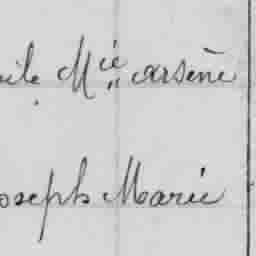 Mcie arsène
oseph Marie